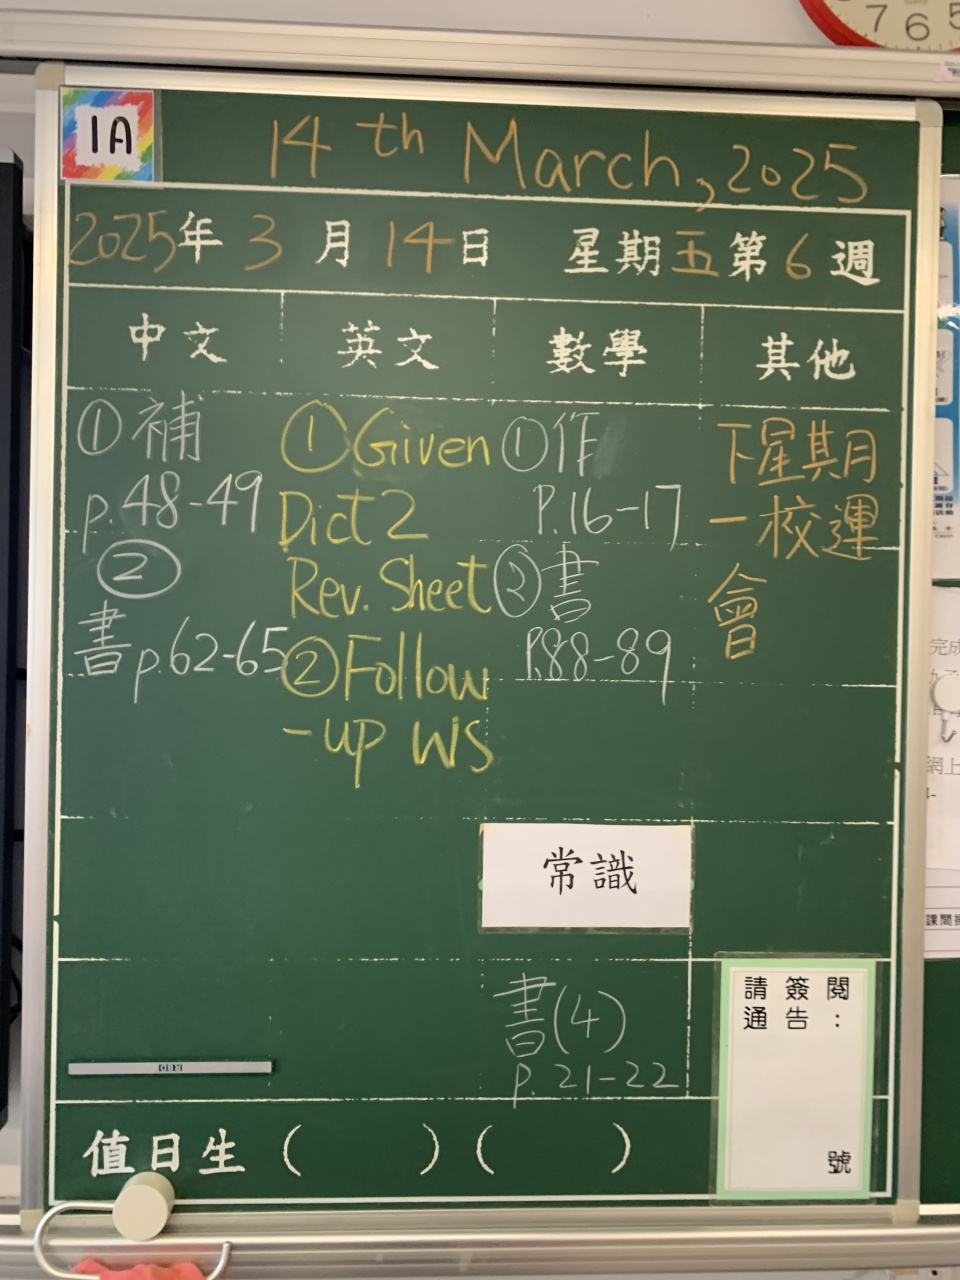 7 6 5
1A
14th March, 2025
2025年 3 月 14日 星期五第6週
中文 英文 數學 其他
①補
p.48-49
②
書p.62-65
①Given
Dict 2
Rev. Sheet
②Follow
-up WS
①作
P.16-17
②書
P.88-89
下星期月
一校運
會
常識
書(4)
p.21-22
請簽閱
通告：
號
值日生 ( ) ( )
完成
網上
課間